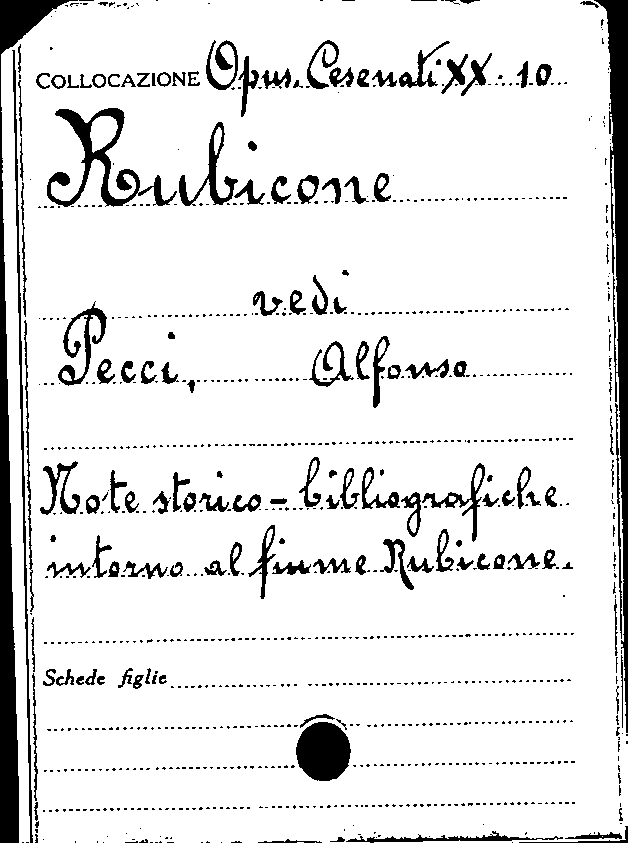 COLLOCAZIONE Opus. Cesenati XX. 10
Rubicone
vedi
Pecci, Alfonso
Note storico - bibliografiche
intorno al fiume Rubicone.
Schede figlie